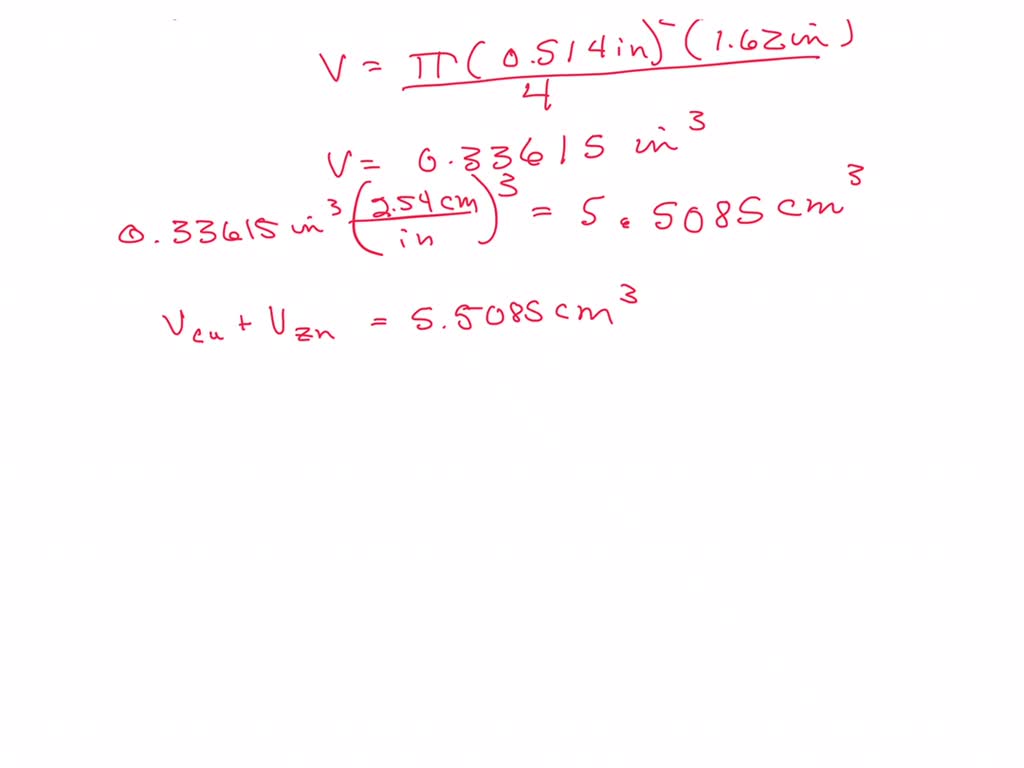 V = π(0.514in)²(1.62in)/4
V = 0.33615 in³
0.33615 in³ (2.54 cm/in)³ = 5.5085 cm³
Vcu + Vzn = 5.5085 cm³